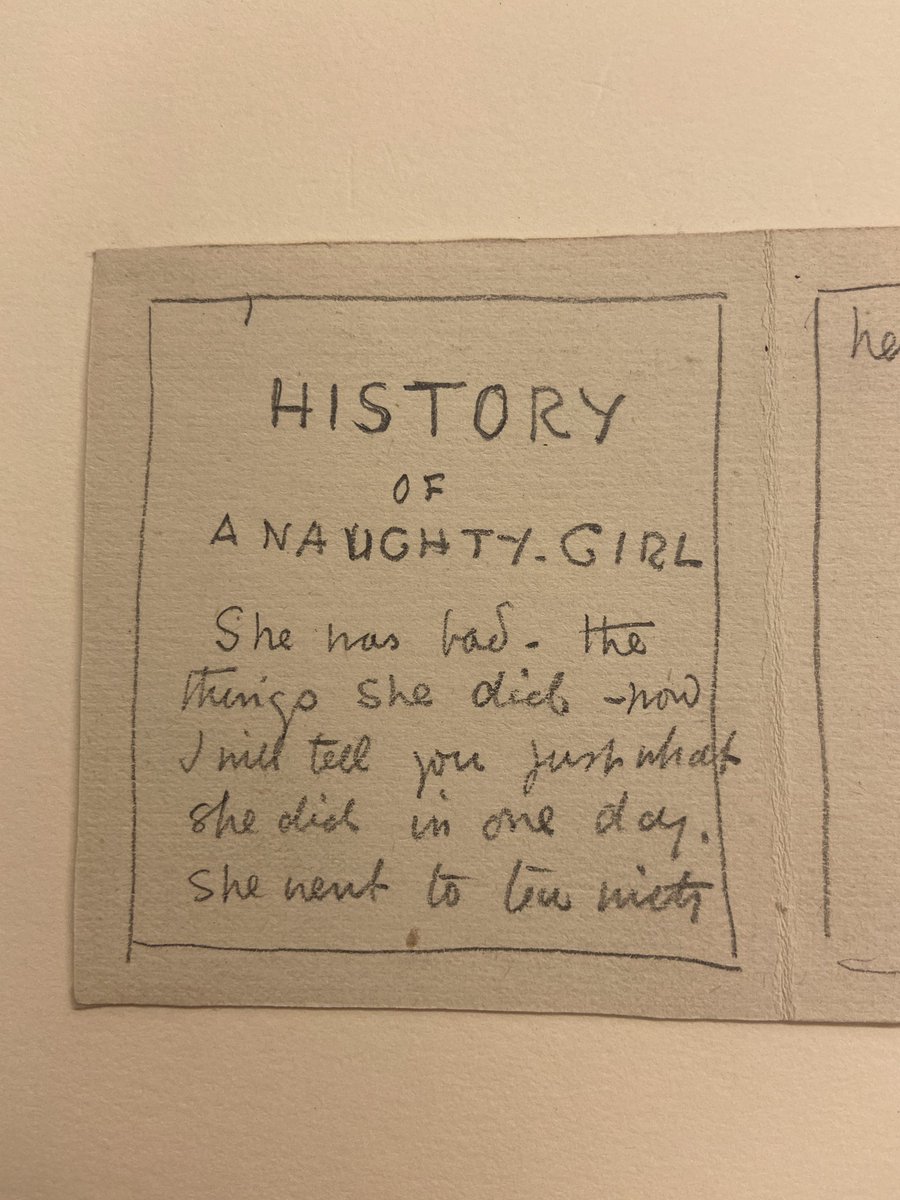 HISTORY
OF
A NAUGHTY-GIRL
She was bad - the
things she did - now
I will tell you just what
she did in one day.
She went to tea with
he